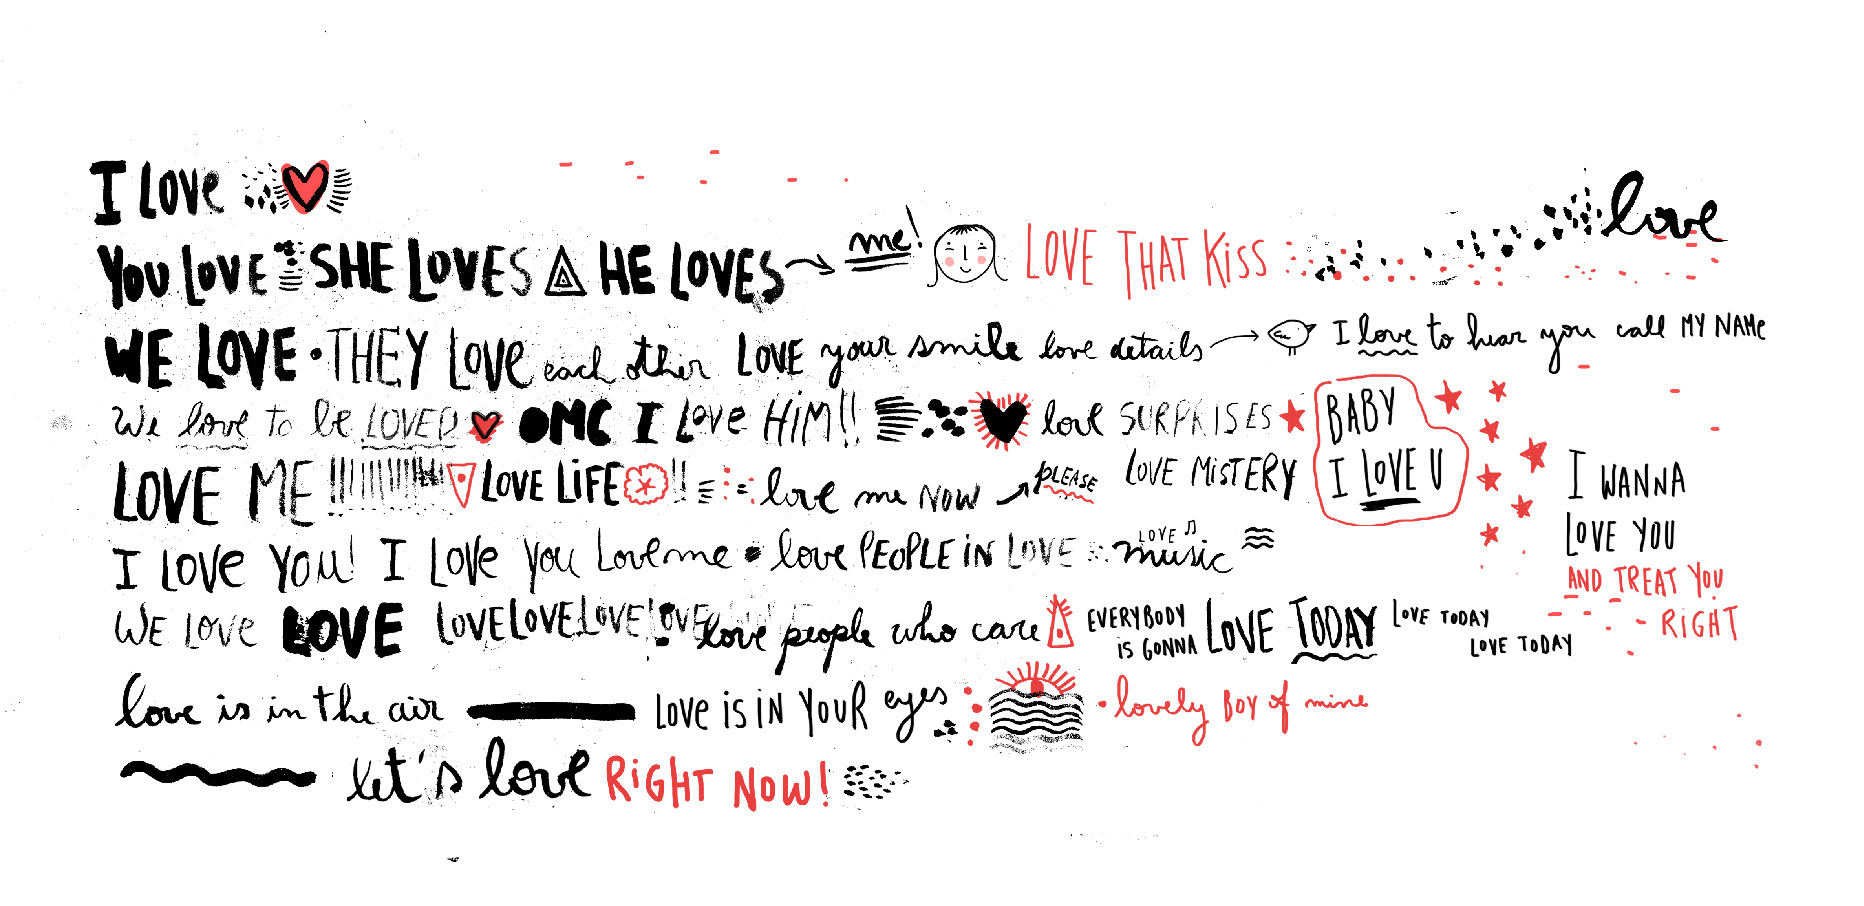 I LOVE
love
YOU LOVE SHE LOVES HE LOVES me! LOVE THAT KiSS
WE LOVE • THEY LOVE each other LOVE your smile love details I love to hear you call MY NAMe
We love to be LOVED OMG I Love HiM!! love SURPRISES
BABY
I LOVE U
LOVE ME !!!!!!!!!!! LOVE LiFE !! love me NOW PLEASE LOVE MiSTERY
I WANNA
LOVE YOU
AND TREAT YOU
RiGHT
I LOVe YOU! I LOVe YOU Love me • love PEOPLE iN LOVE LOVE music
WE LOVe LOVE LOVE LOVE LOVE LOVE love people who care EVERYBODY
iS GONNA LOVE TODAY LOVE TODAY
LOVE TODAY
love is in the air LOVE iS iN YOUR eyes • lovely BOY of mine
let's love RiGHT NOW!